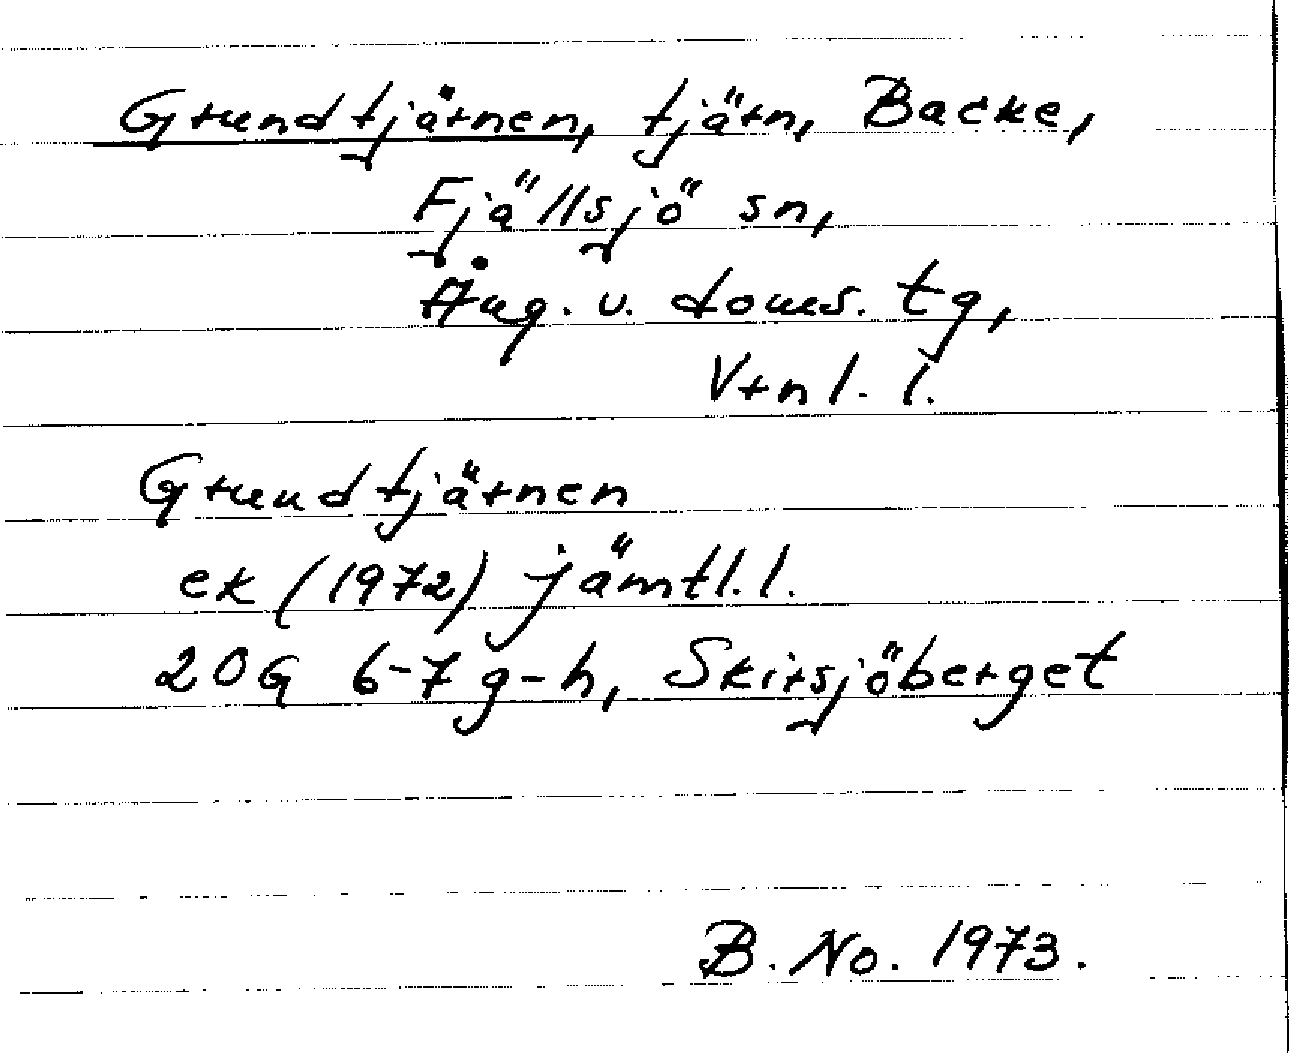 Grundtjärnen, tjärn, Backe,
Fjällsjö sn,
Ång. v. doms. tg,
Vrnl. l.
Grundtjärnen
ek (1972) jämtl. l.
20G 6-7 g-h, Skirsjöberget
B. No. 1973.